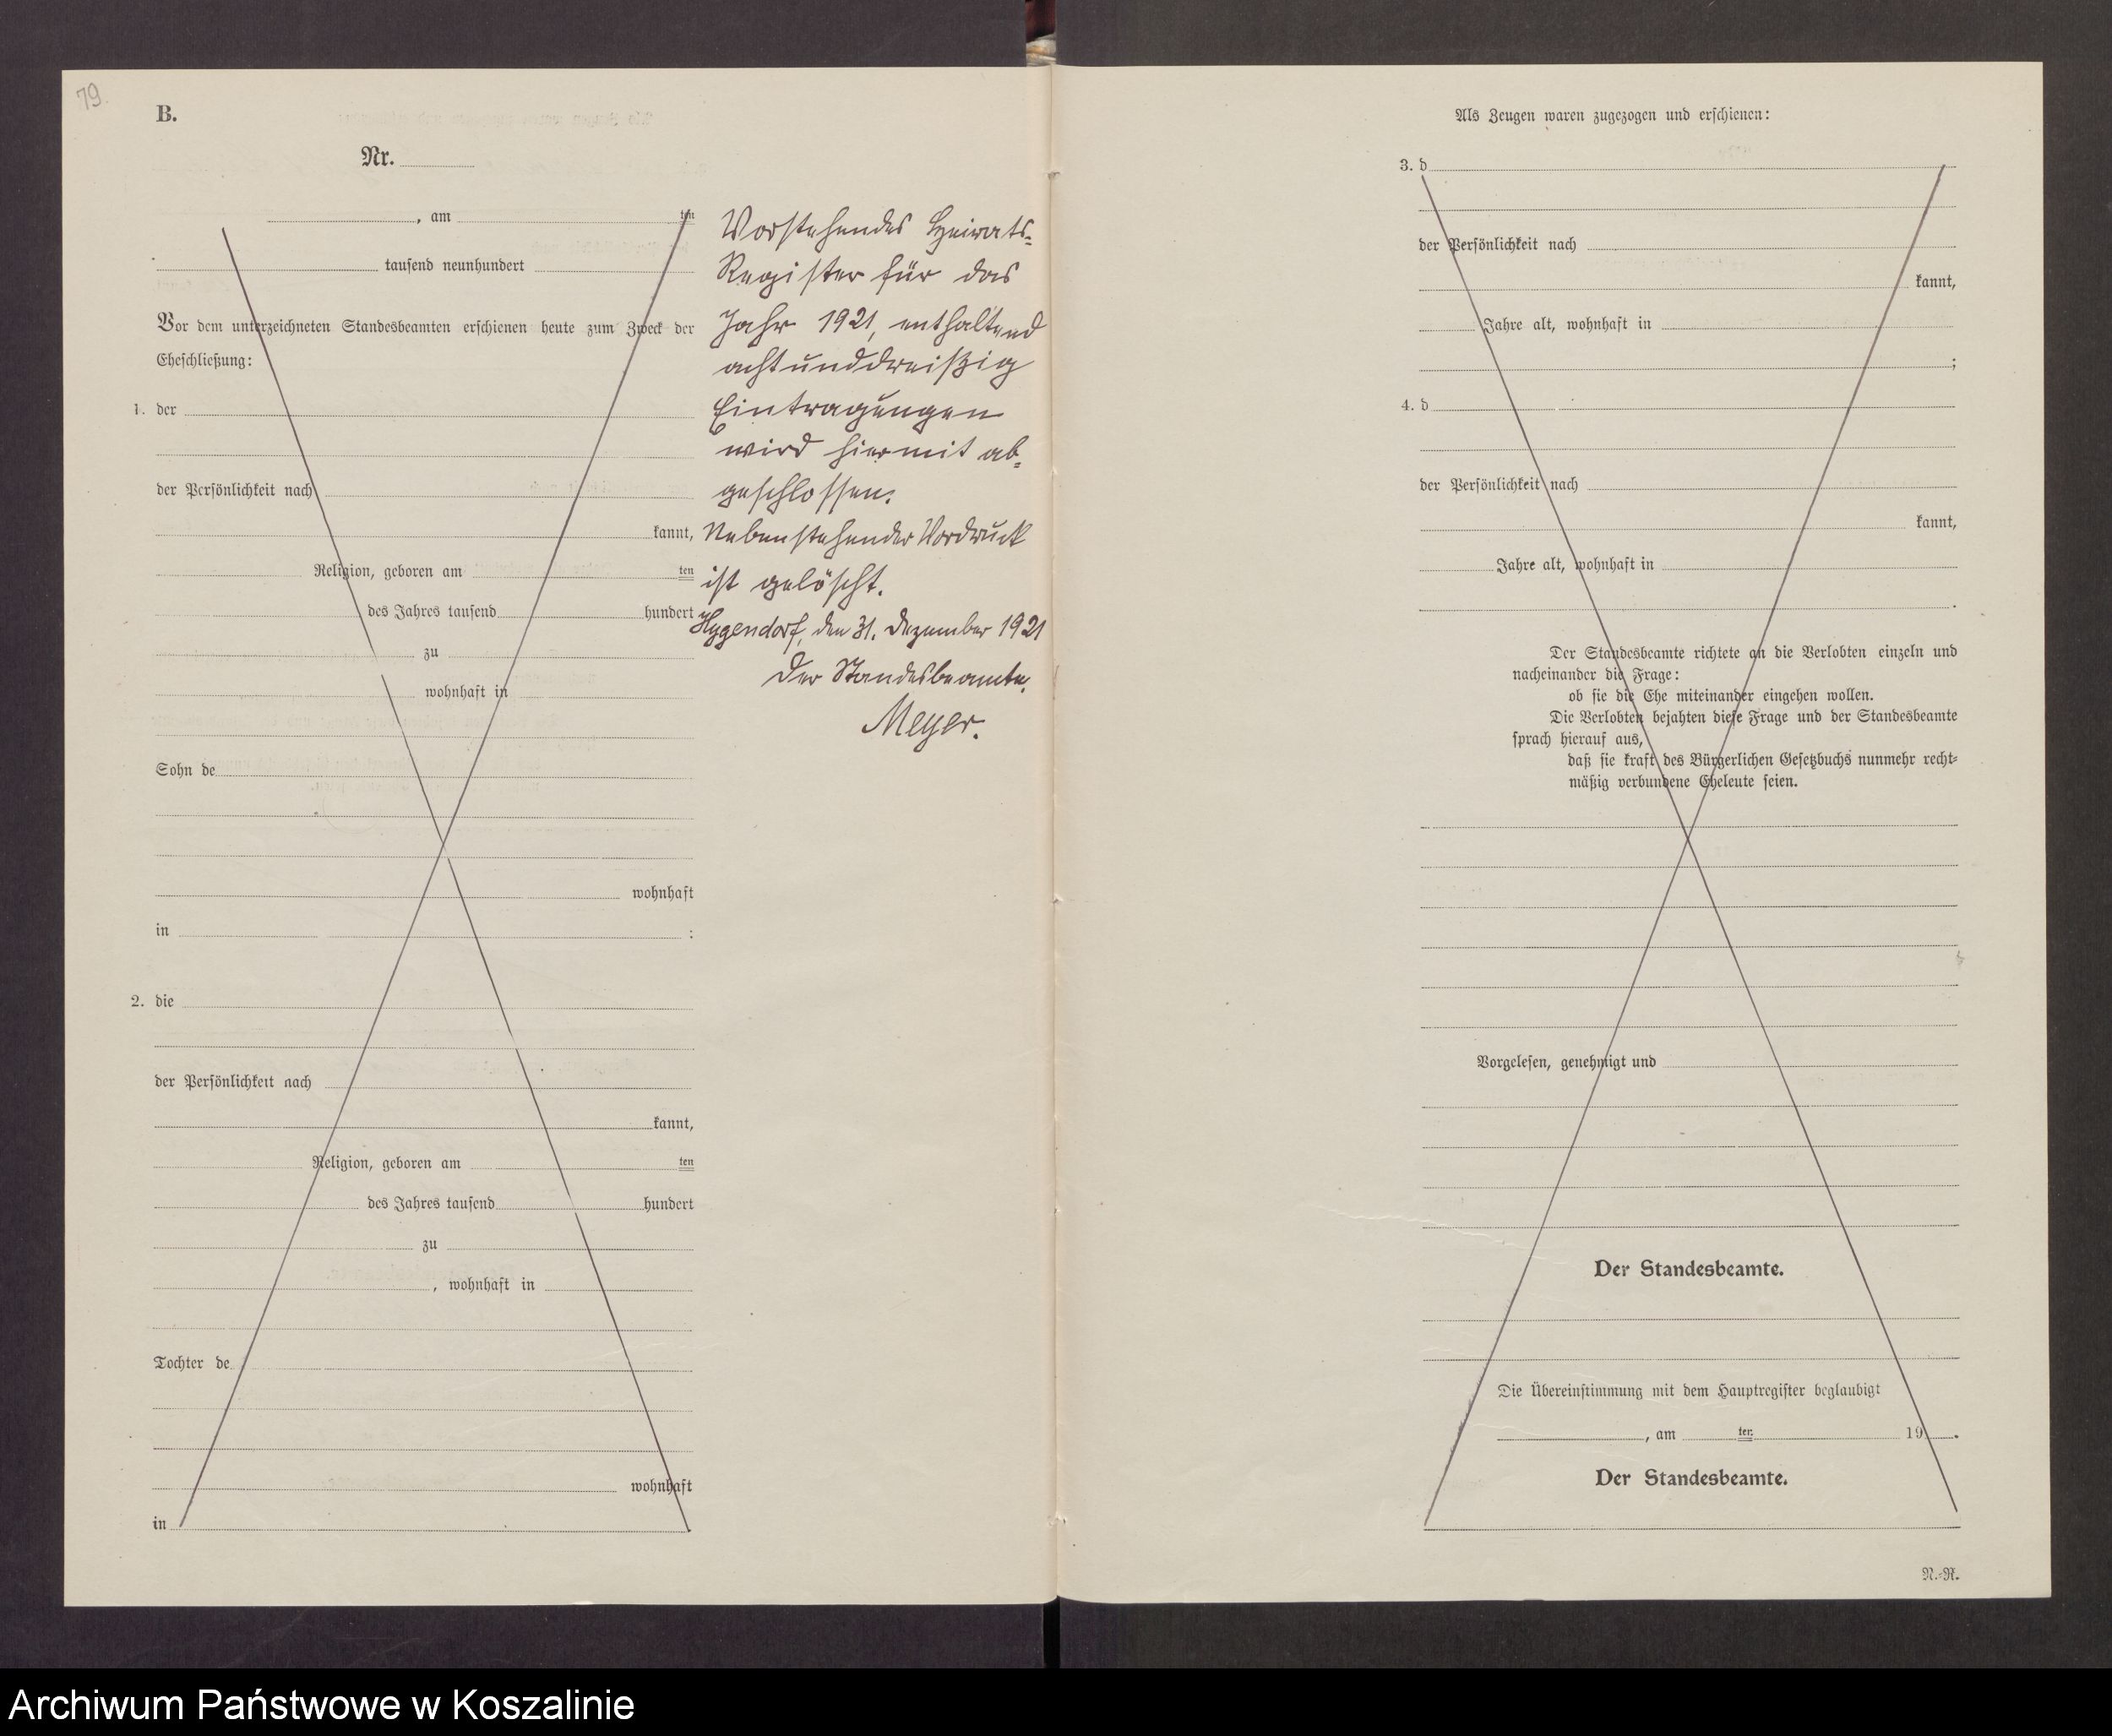 79.
B.
Nr.
, am ten
tausend neunhundert
Vor dem unterzeichneten Standesbeamten erschienen heute zum Zweck der
Eheschließung:
1. der
der Persönlichkeit nach
kannt,
Religion, geboren am ten
des Jahres tausend hundert
zu
wohnhaft in
Sohn de
wohnhaft
in ;
2. die
der Persönlichkeit nach
kannt,
Religion, geboren am ten
des Jahres tausend hundert
zu
, wohnhaft in
Tochter de
wohnhaft
in
Vorstehendes Heirats-
Register für das
Jahr 1921, enthaltend
achtunddreißig
Eintragungen
wird hiermit ab-
geschlossen.
Nebenstehender Vordruck
ist gelöscht.
den 31. Dezember 1921
Der Standesbeamte.
Meyer.
Als Zeugen waren zugezogen und erschienen:
3. d
der Persönlichkeit nach
kannt,
Jahre alt, wohnhaft in
;
4. d
der Persönlichkeit nach
kannt,
Jahre alt, wohnhaft in
.
Der Standesbeamte richtete an die Verlobten einzeln und
nacheinander die Frage:
ob sie die Ehe miteinander eingehen wollen.
Die Verlobten bejahten diese Frage und der Standesbeamte
sprach hierauf aus,
daß sie kraft des Bürgerlichen Gesetzbuchs nunmehr recht-
mäßig verbundene Eheleute seien.
Vorgelesen, genehmigt und
Der Standesbeamte.
Die Übereinstimmung mit dem Hauptregister beglaubigt
, am ten 19 .
Der Standesbeamte.
N.-R.
Archiwum Państwowe w Koszalinie